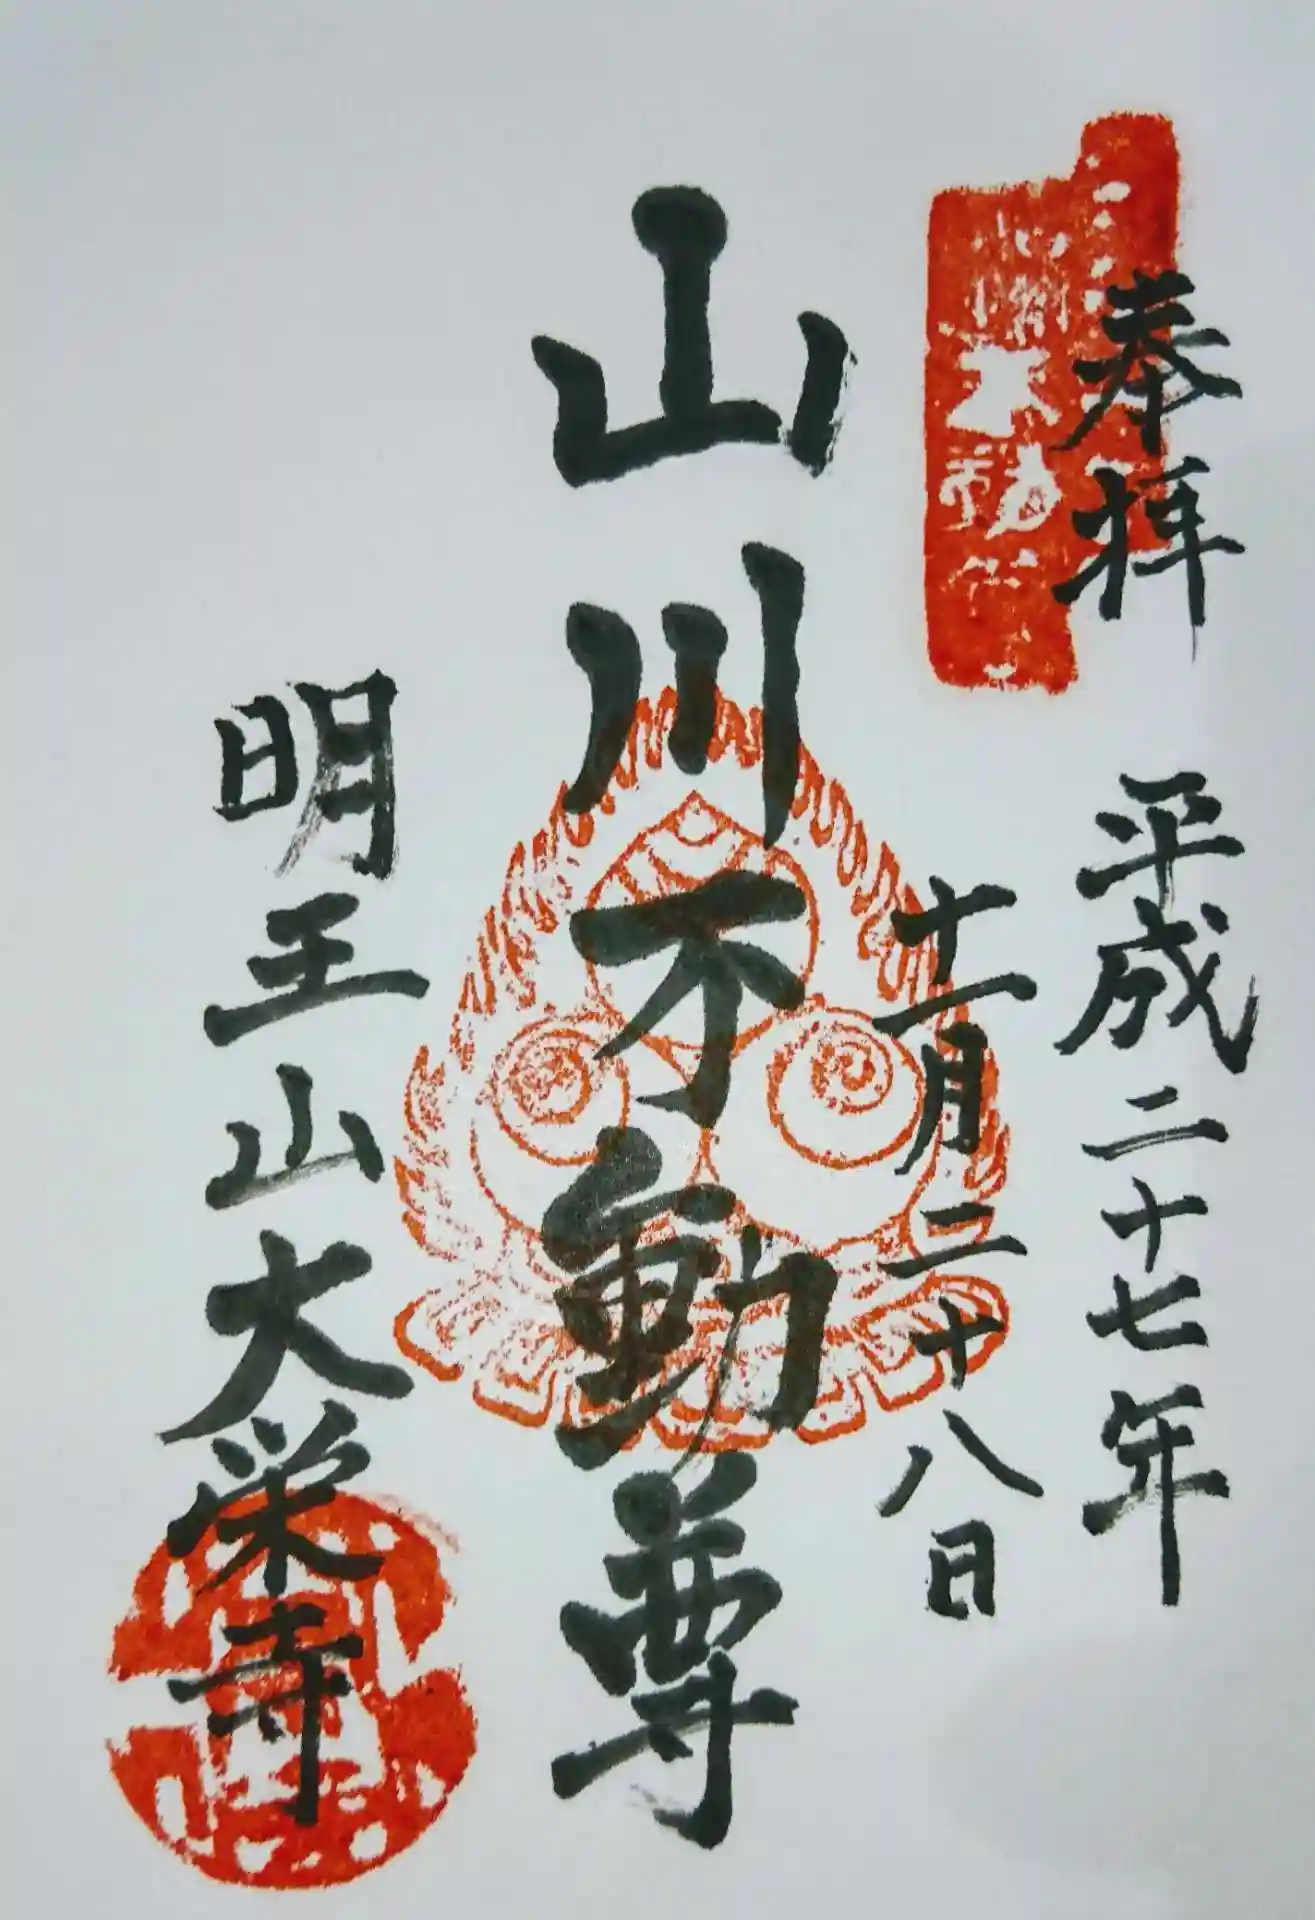 奉拝
平成二十七年
十一月二十八日
山川不動尊
明王山大栄寺